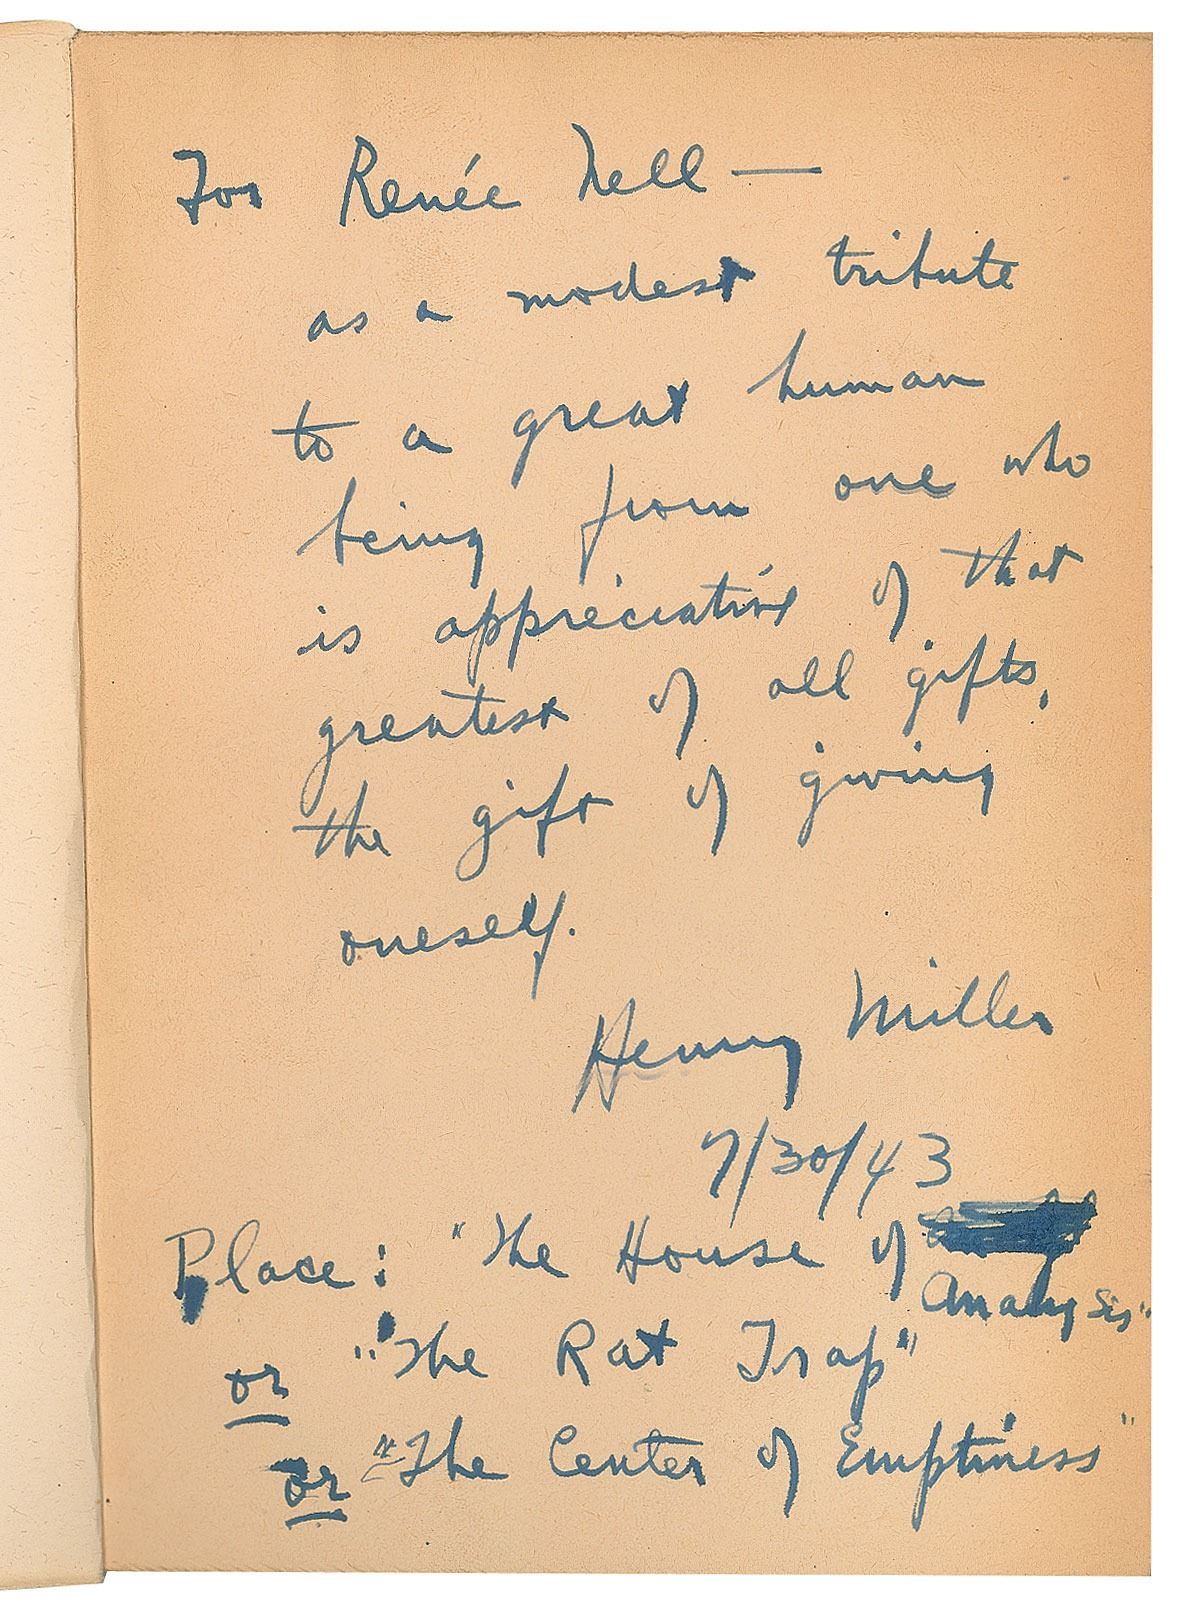 For Renée Nell —
as a modest tribute
to a great human
being from one who
is appreciative of that
greatest of all gifts,
the gift of giving
oneself.
Henry Miller
7/30/43
Place: "The House of
Analysis"
or "The Rat Trap"
or "The Center of Emptiness"